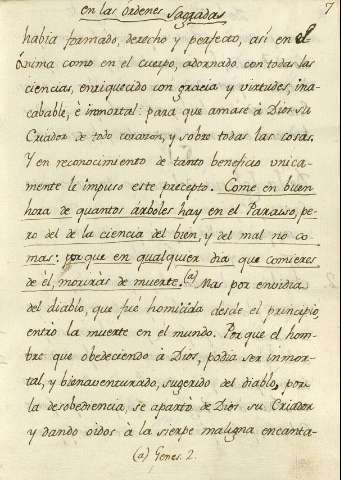 en las ordenes sagradas
7
había formado, derecho y perfecto, así en el
ánima como en el cuerpo, adornado con todas las
ciencias, enriquecido con gracia y virtudes, ina-
cabable, è inmortal: para que amase à Dios su
Criador de todo corazón, y sobre todas las cosas.
Y en reconocimiento de tanto beneficio unica-
mente le impuso este precepto. Come en buen
hora de quantos árboles hay en el Paraíso, pe-
ro del de la ciencia del bien, y del mal no co-
mas: porque en qualquier dia que comieres
de él, morirás de muerte. (a) Mas por envidia
del diablo, que fué homicida desde el principio
entró la muerte en el mundo. Porque el hom-
bre que obedeciendo à Dios, podia ser inmor-
tal, y bienaventurado, sugerido del diablo, por
la desobediencia, se apartò de Dios su Criador
y dando oidos à la sierpe maligna encanta-
(a) Genes. 2.